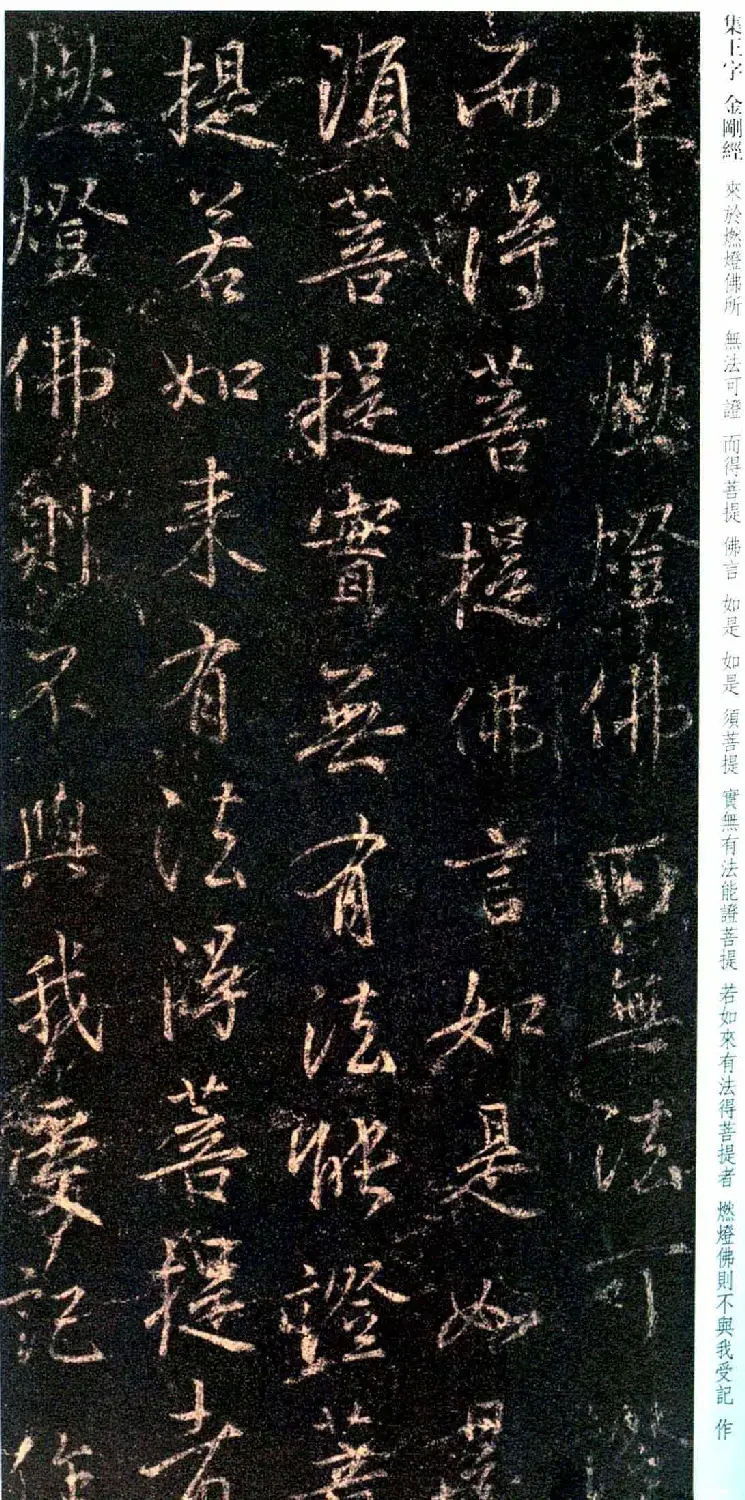 集王字 金剛經 來於燃燈佛所 無法可證 而得菩提 佛言 如是 如是 須菩提 實無有法能證菩提 若如來有法得菩提者 燃燈佛則不與我受記 作
来於燃燈佛所無法可證
而得菩提佛言如是如是
須菩提實無有法能證菩
提若如来有法得菩提者
燃燈佛則不與我受記作